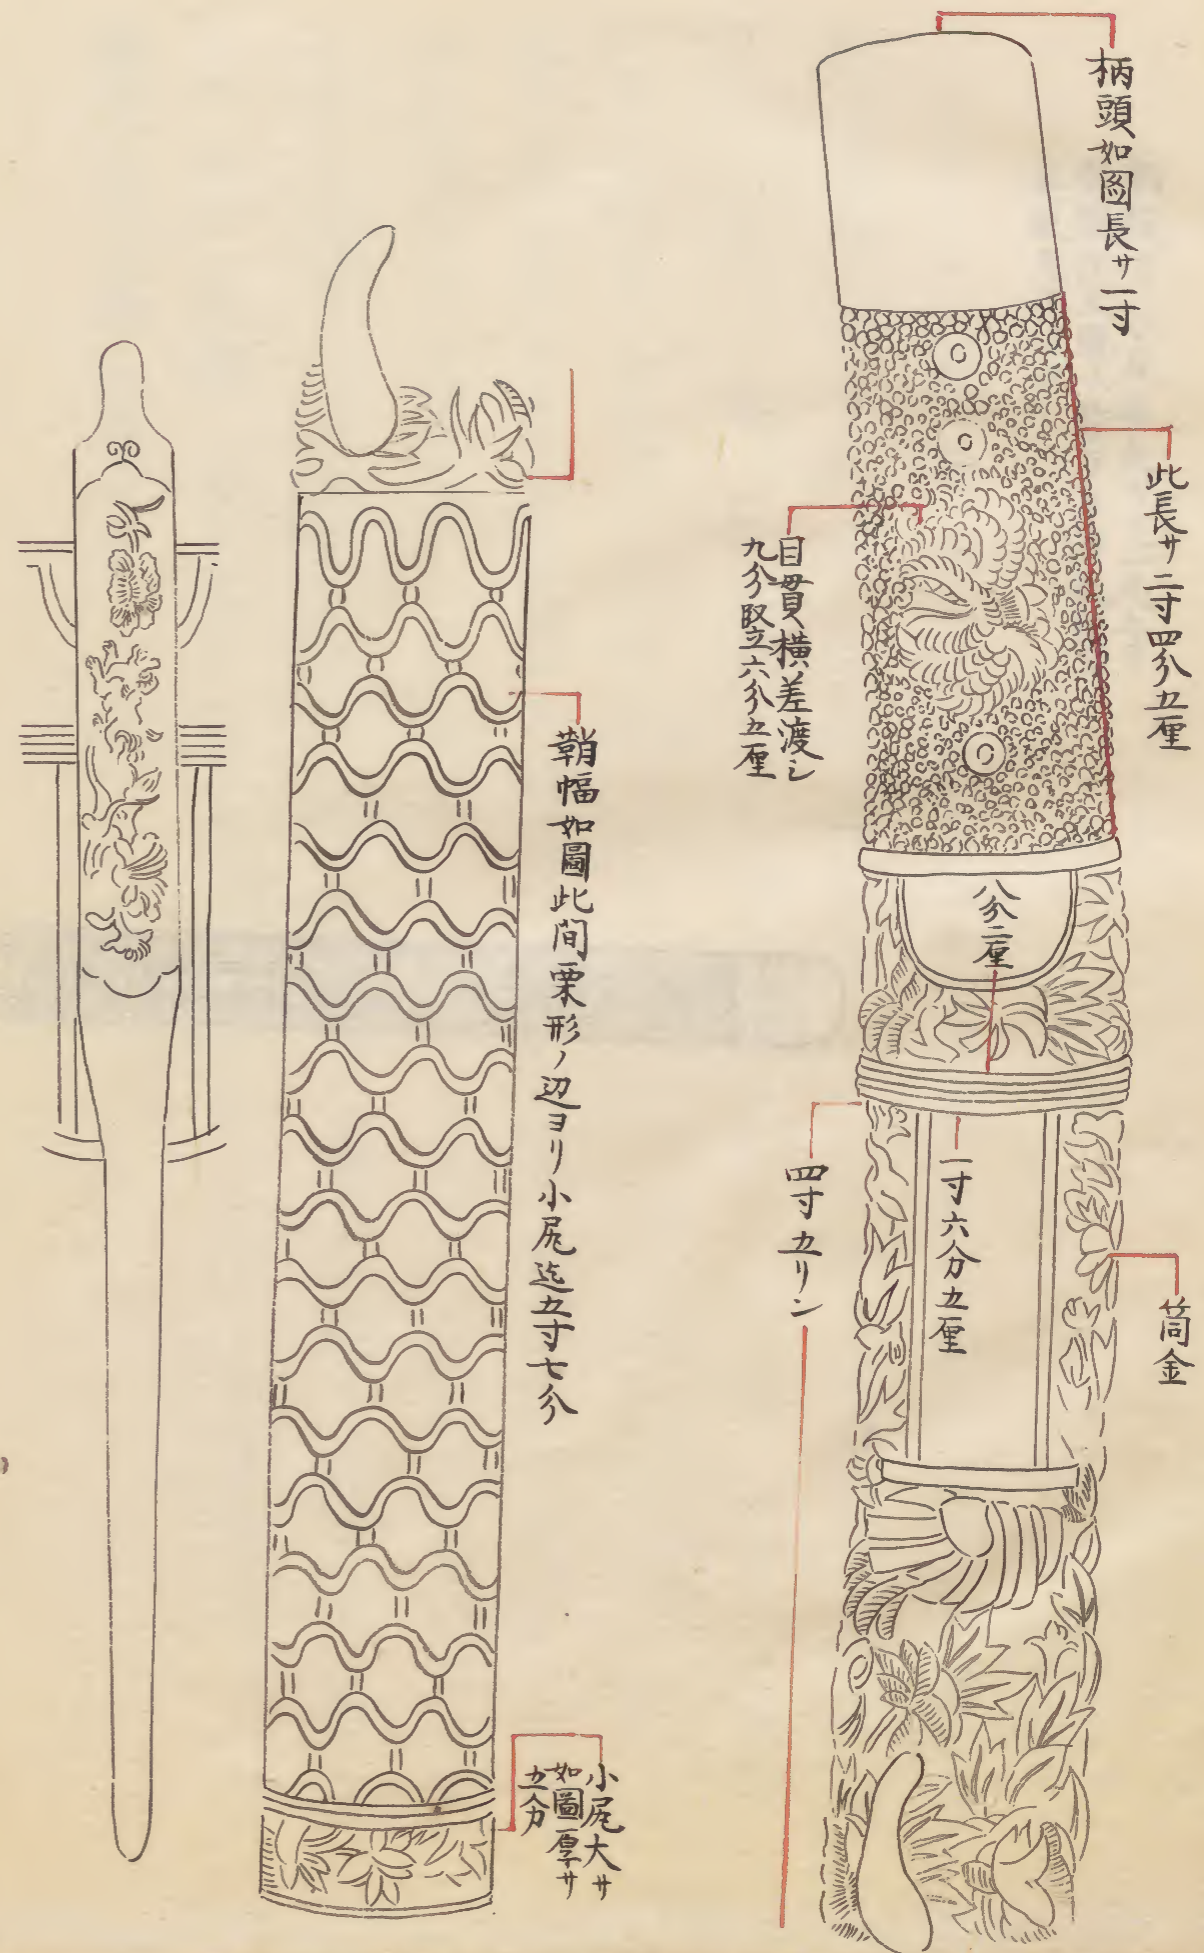 柄頭如图長サ一寸
此長サ二寸四分五厘
目貫横差渡シ
九分竪立六分五厘
八分二厘
一寸六分五厘
筒金
四寸五リン
鞘幅如圖此間栗形ノ辺ヨリ小尻迄五寸七分
小尻大サ
如圖厚サ
五分